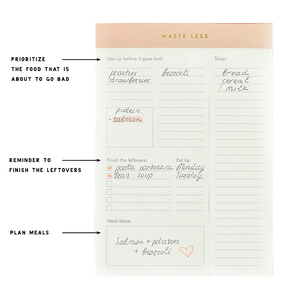 WASTE LESS
PRIORITIZE
THE FOOD THAT IS
ABOUT TO GO BAD
Use up before it goes bad:
peaches broccoli
strawberries
protein:
- salmon
Shop:
bread
cereal
milk
REMINDER TO
FINISH THE LEFTOVERS
Finish the leftovers: Eat by:
pasta carbonara Monday
bean soup Tuesday
PLAN MEALS
Meal ideas:
Salmon + potatoes
+ broccoli